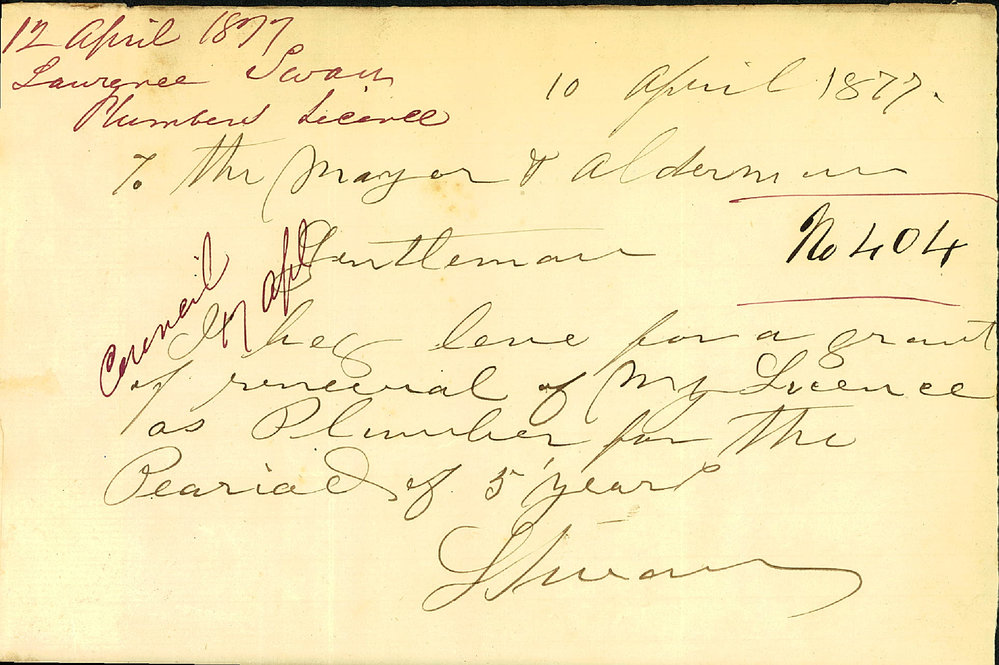 12 April 1877
Lawrence Swan
Plumbers Licence
10 April 1877.
To the Mayor & Alderman
No 404
Gentleman
Council
17 Apl
I beg leve for a grant
of renewial of My Licence
as Plumber for the
Peariad of 5 years
L Swan